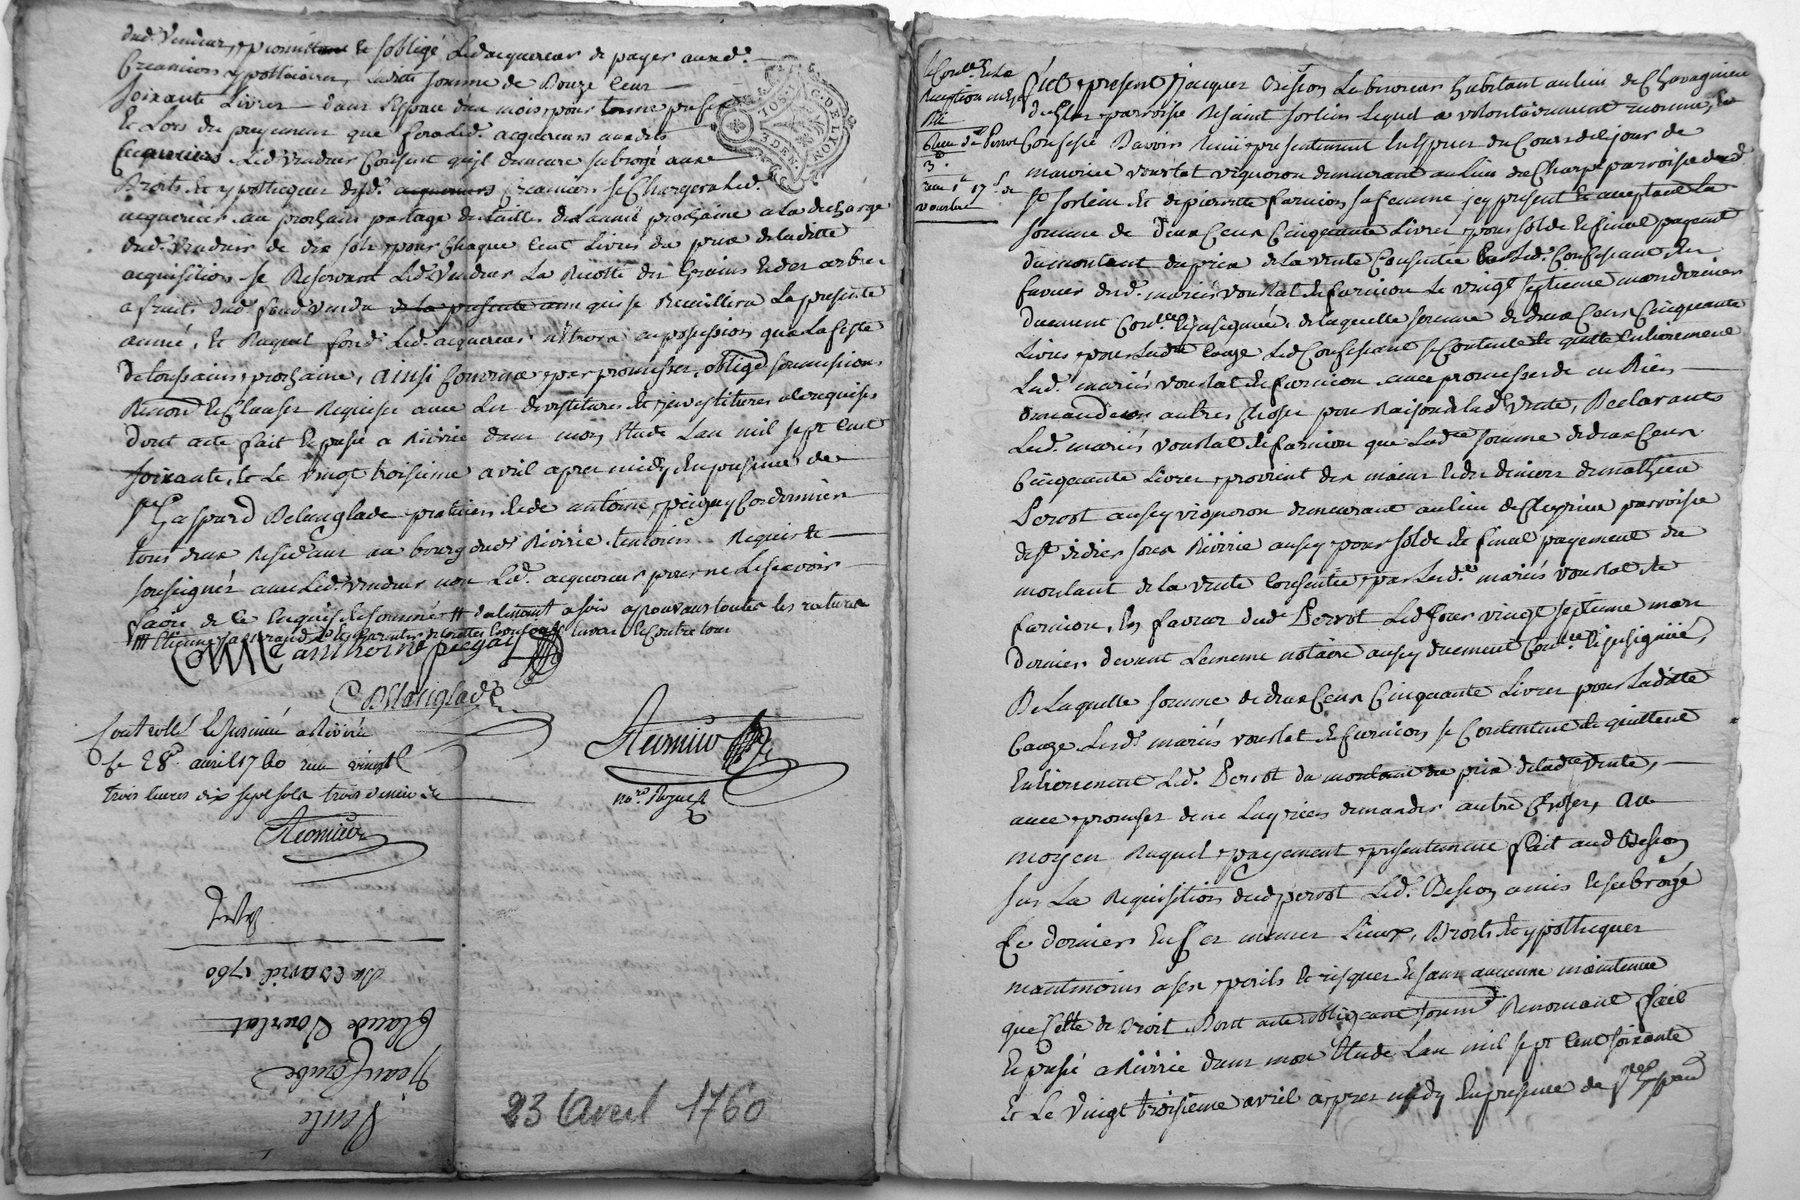 dud. vendeur, et promis et s'obligé led. acquereur de payer auxd.
Creanciers ypothicaires, ladite somme de Douze Cent
soixante Livres dans l'Espace d'un mois pour terme prefix
et Lors du payement que fera led. acquereur auxdits
Creanciers led. vendeur Consent qu'il demeure subrogé aux
Droits et ypotheques desd. acquereurs Creanciers se Chargera led.
acquereur au prochain partage de tailles de l'année prochaine a la decharge
dud. vendeur de dix sols pour Chaque Cent Livres du prix de ladite
acquisition se Reservant led. vendeur La Recolte des grains et des arbres
a fruits dud. fond vendu de la presente ann qui se Recuillira La presente
année, et duquel fond led. acquereur n'Entrera en possession qu'a La feste
de toussaints prochaine, ainsi Convenu par promesses, oblige soumissions
Renon. et Clauses Requises avec Les devestitures et investitures a ce requises
Dont acte fait et passé a Riverie dans mon Etude L'an mil sept Cent
soixante, et Le vingt troisieme avril apres midy En presence de
sr. Gaspard Delanglade praticien et de antoine peigay Cordonnier
tous deux Residants au bourg dud. Riverie temoins Requis et
soussignés avec led. vendeur non led. acquereur pour ne Le scavoir
faire de ce Enquis et sommé
anthoine peegay
C Delanglade
Controllé et Insinué a Riverie
Le 28e. avril 1760 reçu vingt
trois livres dix sept sols trois deniers
no.re Royal
Du 23 avril 1760
Claude Vourlat
Jean Combe
Vente
23 Avril 1760
Perrot
3
vourlat
S'est present Jacques Besson Laboureur habitant au lieu de Chavagnieu
parroisse de saint sorlin Lequel a volontairement reconnu, et
Confessé D'avoir Reçu presentement En Espece du Cours de ce jour de
maurice vourlat vigneron demeurant au Lieu du Charpe parroisse dud.
st. sorlin et de pierrette farnion sa femme icy present et acceptant La
somme de deux Cent Cinquante Livres pour solde et final payement
du montant du prix de la vente Consentie par led. Confessant En
faveur desd. mariés vourlat et farnion Le vingt septieme mars dernier
duement Con.llé et insinuée, de laquelle somme de deux Cent Cinquante
Livres pour Ladte. Cauze led. Confessant se Contente et quitte Entierement
Lesd. mariés vourlat et farnion avec promesses de ne Rien
demander autres Choses pour Raison de lade. vente, Declarants
Lesd. mariés vourlat et farnion que Ladte. somme de deux Cent
Cinquante Livres provient des mains et des deniers de mathieu
Perrot aussy vigneron demeurant au lieu de parroisse
de st. didier sous Riverie aussy pour solde et final payement du
montant de la vente Consentie par Lesd. mariés vourlat et
farnion, En faveur dud. Perrot Led. jour vingt septieme mars
dernier devant Le meme notaire aussy duement Con.llé et insinuée,
De Laquelle somme de deux Cent Cinquante Livres pour Ladite
Cauze Lesd. mariés vourlat et farnion se Contentent et quittent
Entierement Led. Perrot du montant du prix de lade. vente,
avec promesses de ne Luy rien demander autre Choses, au
moyen duquel payement presentement fait aud. Besson
sur La Requisition dud. perrot Led. Besson a mis et subrogé
Ce dernier En ses memes Lieux, Droits et ypotheques
neantmoins a ses perils et risques et sans aucune maintenue
que Celle de Droit. Dont acte obligeant soum. Renoncant fait
et passé a Riverie dans mon Etude L'an mil sept Cent soixante
et Le vingt troisieme avril apres midy En presence de sr. Gaspard